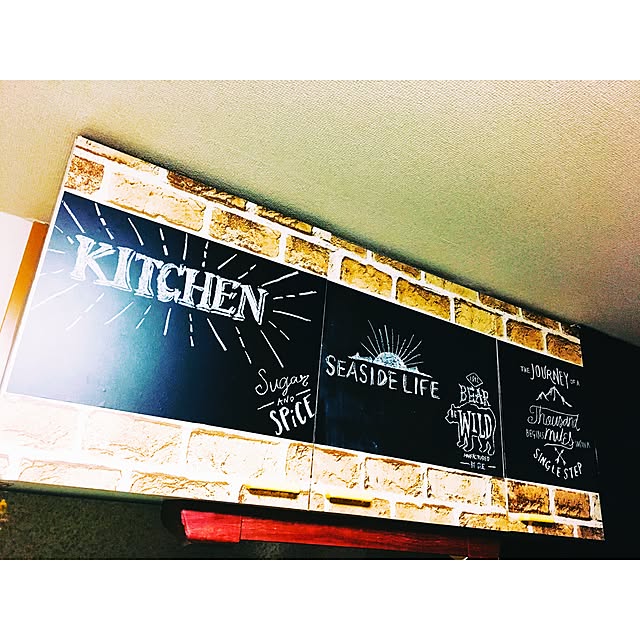 KITCHEN
Sugar
AND
SPiCE
SEASIDE LIFE
BEAR
WILD
THE JOURNEY OF A
Thousand
BEGINS miles WITH
A
SINGLE STEP